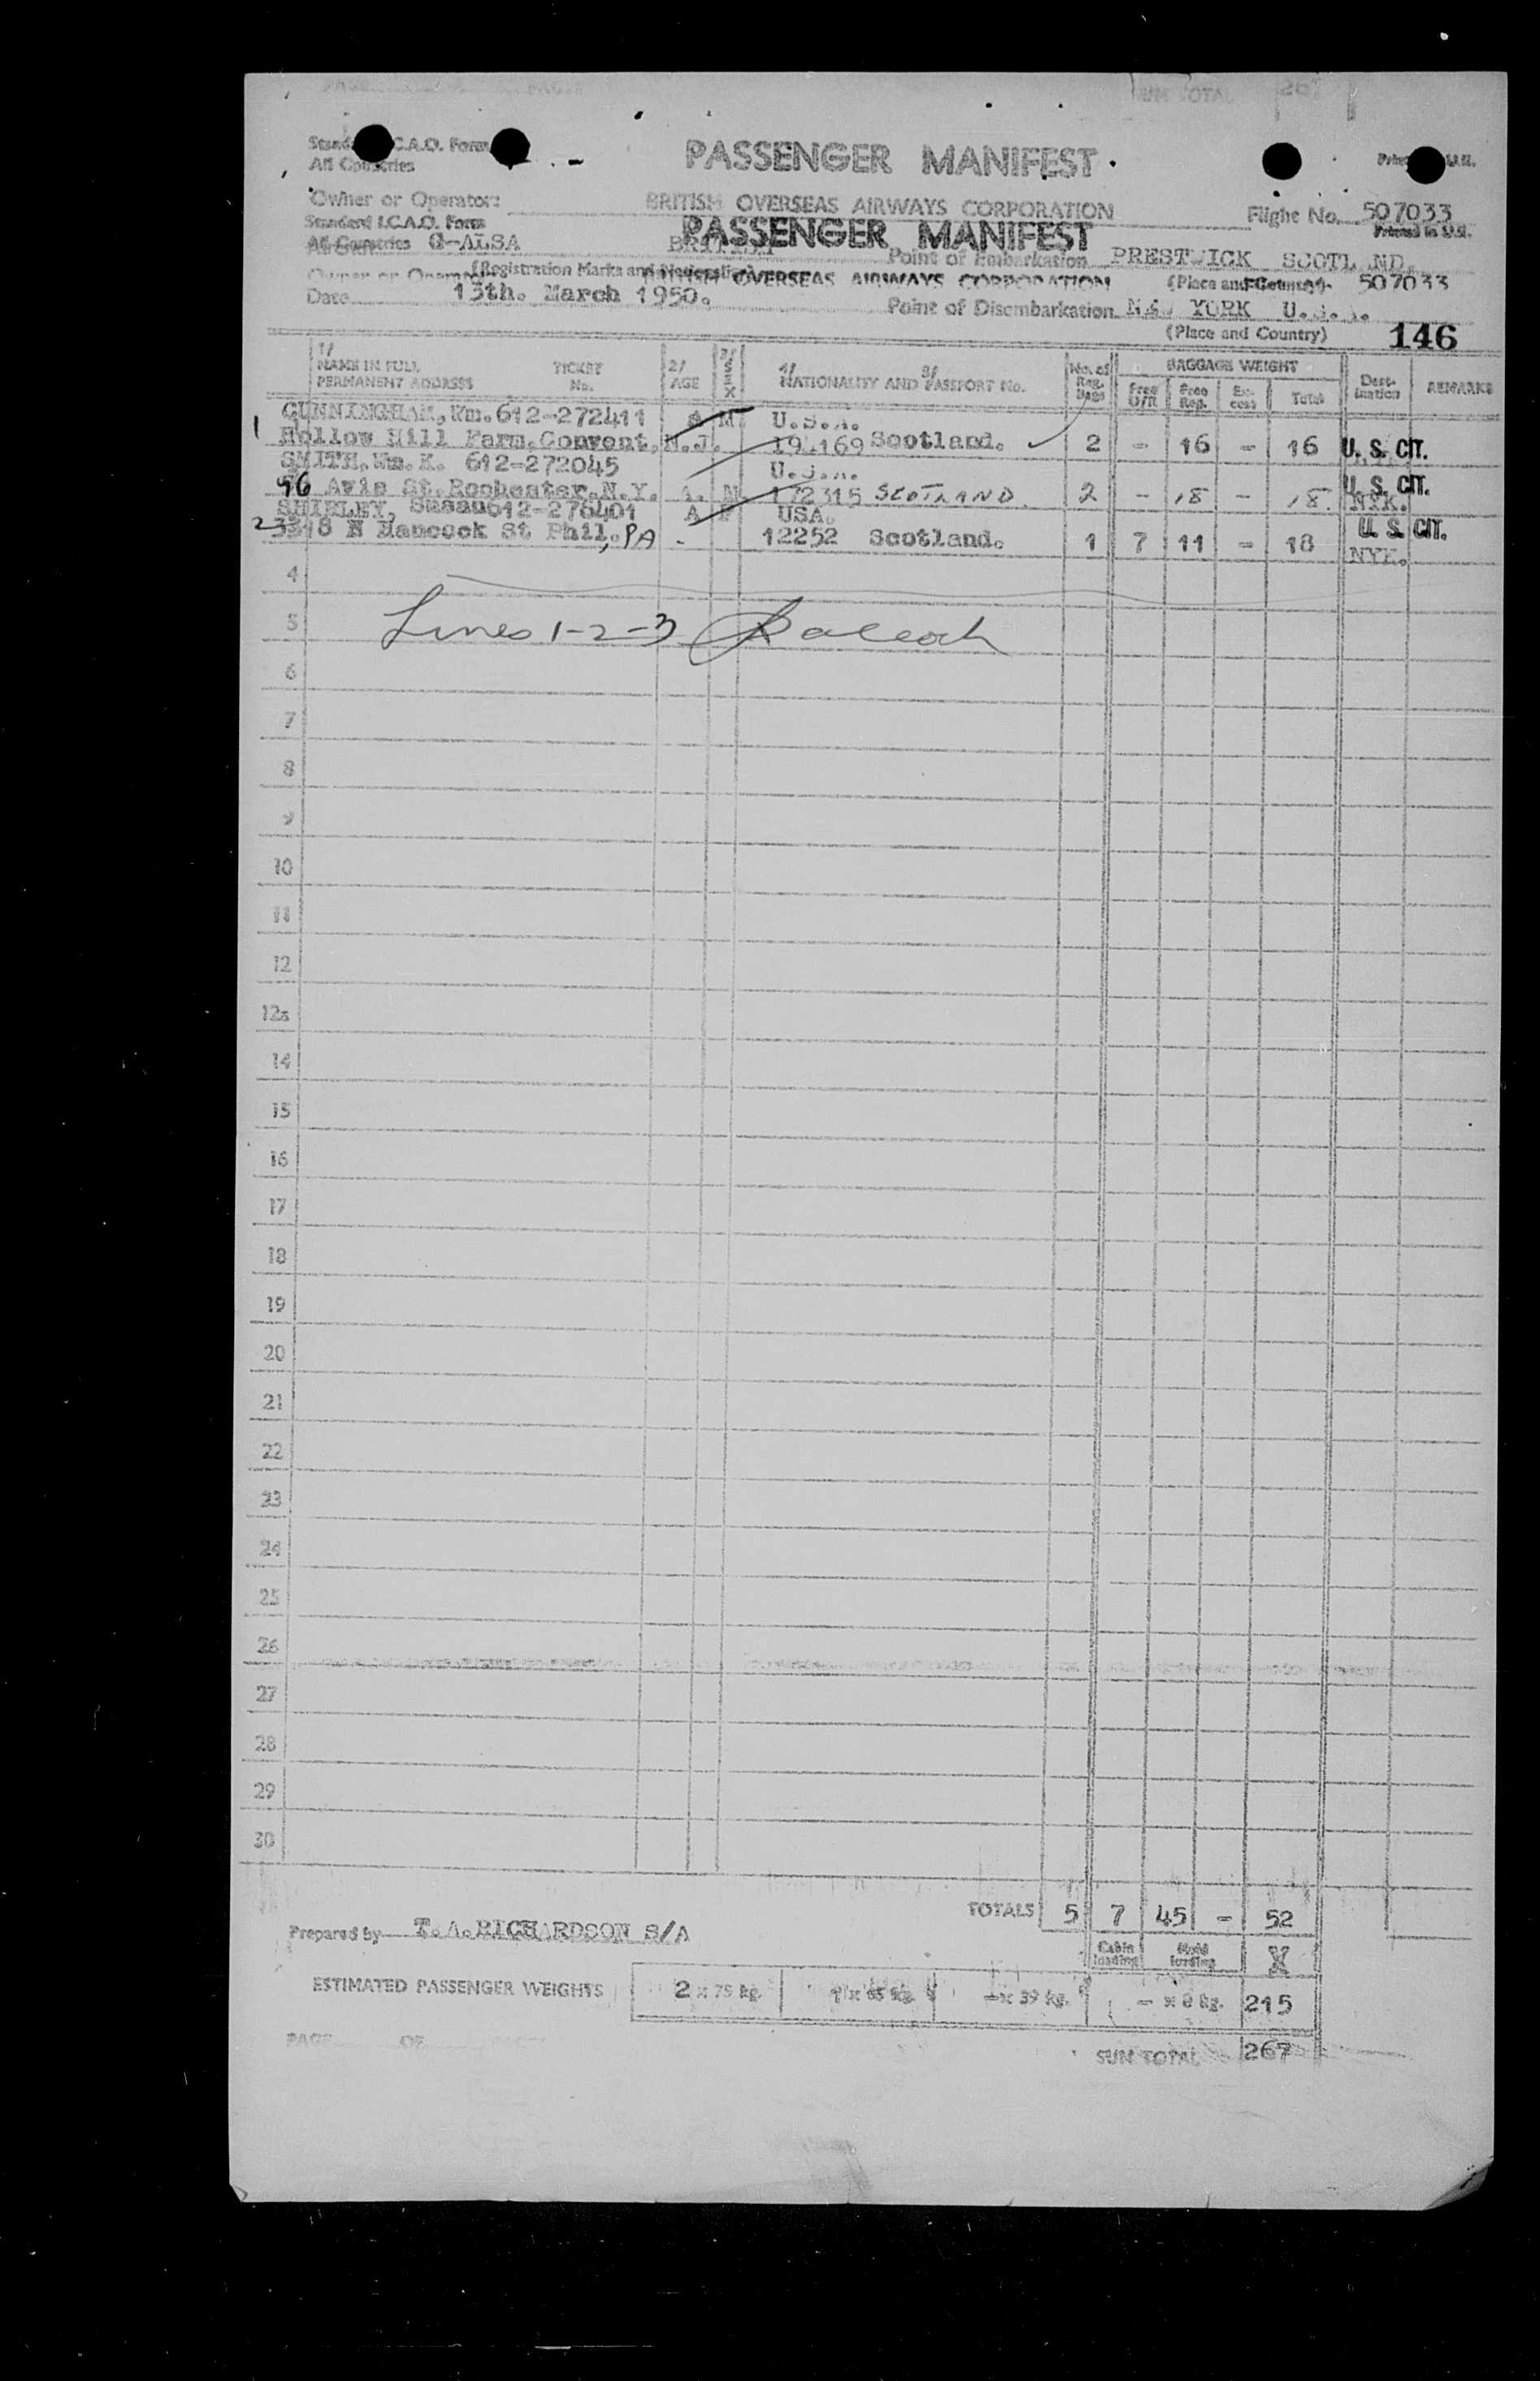 SUM TOTAL 267
Standard I.C.A.O. Form
All Countries
PASSENGER MANIFEST
Owner or Operator: BRITISH OVERSEAS AIRWAYS CORPORATION Flight No. 507033
Standard I.C.A.O. Form PASSENGER MANIFEST Printed in U.K.
All Countries G-ALSA BRITISH Point of Embarkation PRESTWICK SCOTL ND.
(Registration Marks and Nationality) OVERSEAS AIRWAYS CORPORATION (Place and Country) 507033
Date 13th. March 1950. Point of Disembarkation NEW YORK U.S.A.
(Place and Country) 146
1/ NAME IN FULL PERMANENT ADDRESS TICKET No. 2/ AGE 3/ SEX 4/ 5/ NATIONALITY AND PASSPORT No. No. of Reg. Bags BAGGAGE WEIGHT Free U/R Free Reg. Ex-cess Total Dest-ination REMARKS
CUNNINGHAM, Wm. 612-272411 A M U.S.A.
1 Hollow Hill Farm, Convent, N.J. Scotland. 2 - 16 - 16 U. S. CIT.
SMITH, Wm. K. 612-272045 U.S.A.
96 Avis St. Rochester. N.Y. A. M 172315 SCOTLAND. 2 - 18 - 18. NYK. U. S. CIT.
SHIRLEY, Susan 612-276401 A F USA.
N Hancock St Phil., PA - 12252 Scotland. 1 7 11 - 18 NYK. U. S. CIT.
4
5 Lines 1-2-3
6
7
8
9
10
11
12
12a
14
15
16
17
18
19
20
21
22
23
24
25
26
27
28
29
30
TOTALS 5 7 45 - 52
Prepared by T. A. RICHARDSON S/A
Cabin loading Hold loading X
ESTIMATED PASSENGER WEIGHTS 2 x 75 kg. 1 x 65 kg. - x 39 kg. - x 8 kg. 215
PAGE OF
SUM TOTAL 267